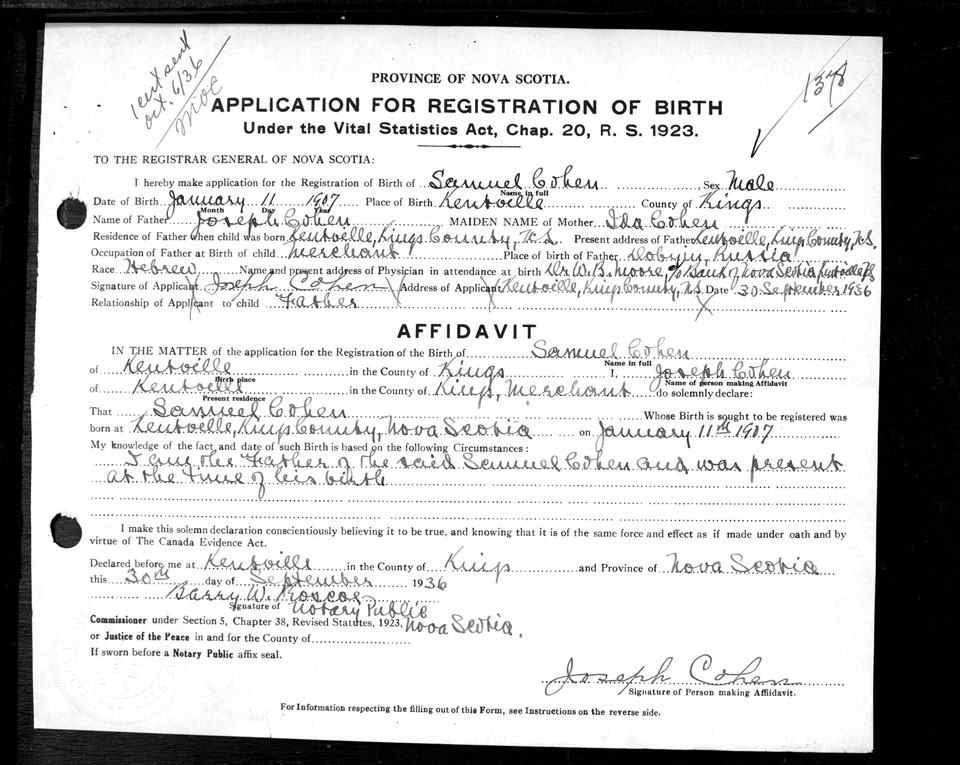 1 cert sent
Oct. 6/36
138
PROVINCE OF NOVA SCOTIA.
APPLICATION FOR REGISTRATION OF BIRTH
Under the Vital Statistics Act, Chap. 20, R. S. 1923.
TO THE REGISTRAR GENERAL OF NOVA SCOTIA:
I hereby make application for the Registration of Birth of Samuel Cohen Sex Male
Name in full
Date of Birth January 11 1907 Place of Birth Kentville County of Kings
Month Day Year
Name of Father Joseph Cohen MAIDEN NAME of Mother Ida Cohen
Residence of Father when child was born Kentville, Kings County, N.S. Present address of Father Kentville, Kings County, N.S.
Occupation of Father at Birth of child Merchant Place of birth of Father Dobryn, Russia
Race Hebrew Name and present address of Physician in attendance at birth Dr W. B. Moore, c/o Bank of Nova Scotia Kentville NS
Signature of Applicant Joseph Cohen Address of Applicant Kentville, Kings County, N.S. Date 30 September 1936
Relationship of Applicant to child Father
AFFIDAVIT
IN THE MATTER of the application for the Registration of the Birth of Samuel Cohen
Name in full
of Kentville in the County of Kings I, Joseph Cohen
Birth place Name of person making Affidavit
of Kentville in the County of Kings, Merchant do solemnly declare:
Present residence
That Samuel Cohen Whose Birth is sought to be registered was
born at Kentville, Kings County, Nova Scotia on January 11th 1907
My knowledge of the fact and date of such Birth is based on the following Circumstances:
I am the Father of the said Samuel Cohen and was present
at the time of his birth
I make this solemn declaration conscientiously believing it to be true, and knowing that it is of the same force and effect as if made under oath and by
virtue of The Canada Evidence Act.
Declared before me at Kentville in the County of Kings and Province of Nova Scotia
this 30th day of September 1936
Barry W. Roscoe
Signature of Notary Public
Commissioner under Section 5, Chapter 38, Revised Statutes, 1923, Nova Scotia.
or Justice of the Peace in and for the County of
If sworn before a Notary Public affix seal.
Joseph Cohen
Signature of Person making Affidavit.
For Information respecting the filling out of this Form, see Instructions on the reverse side.